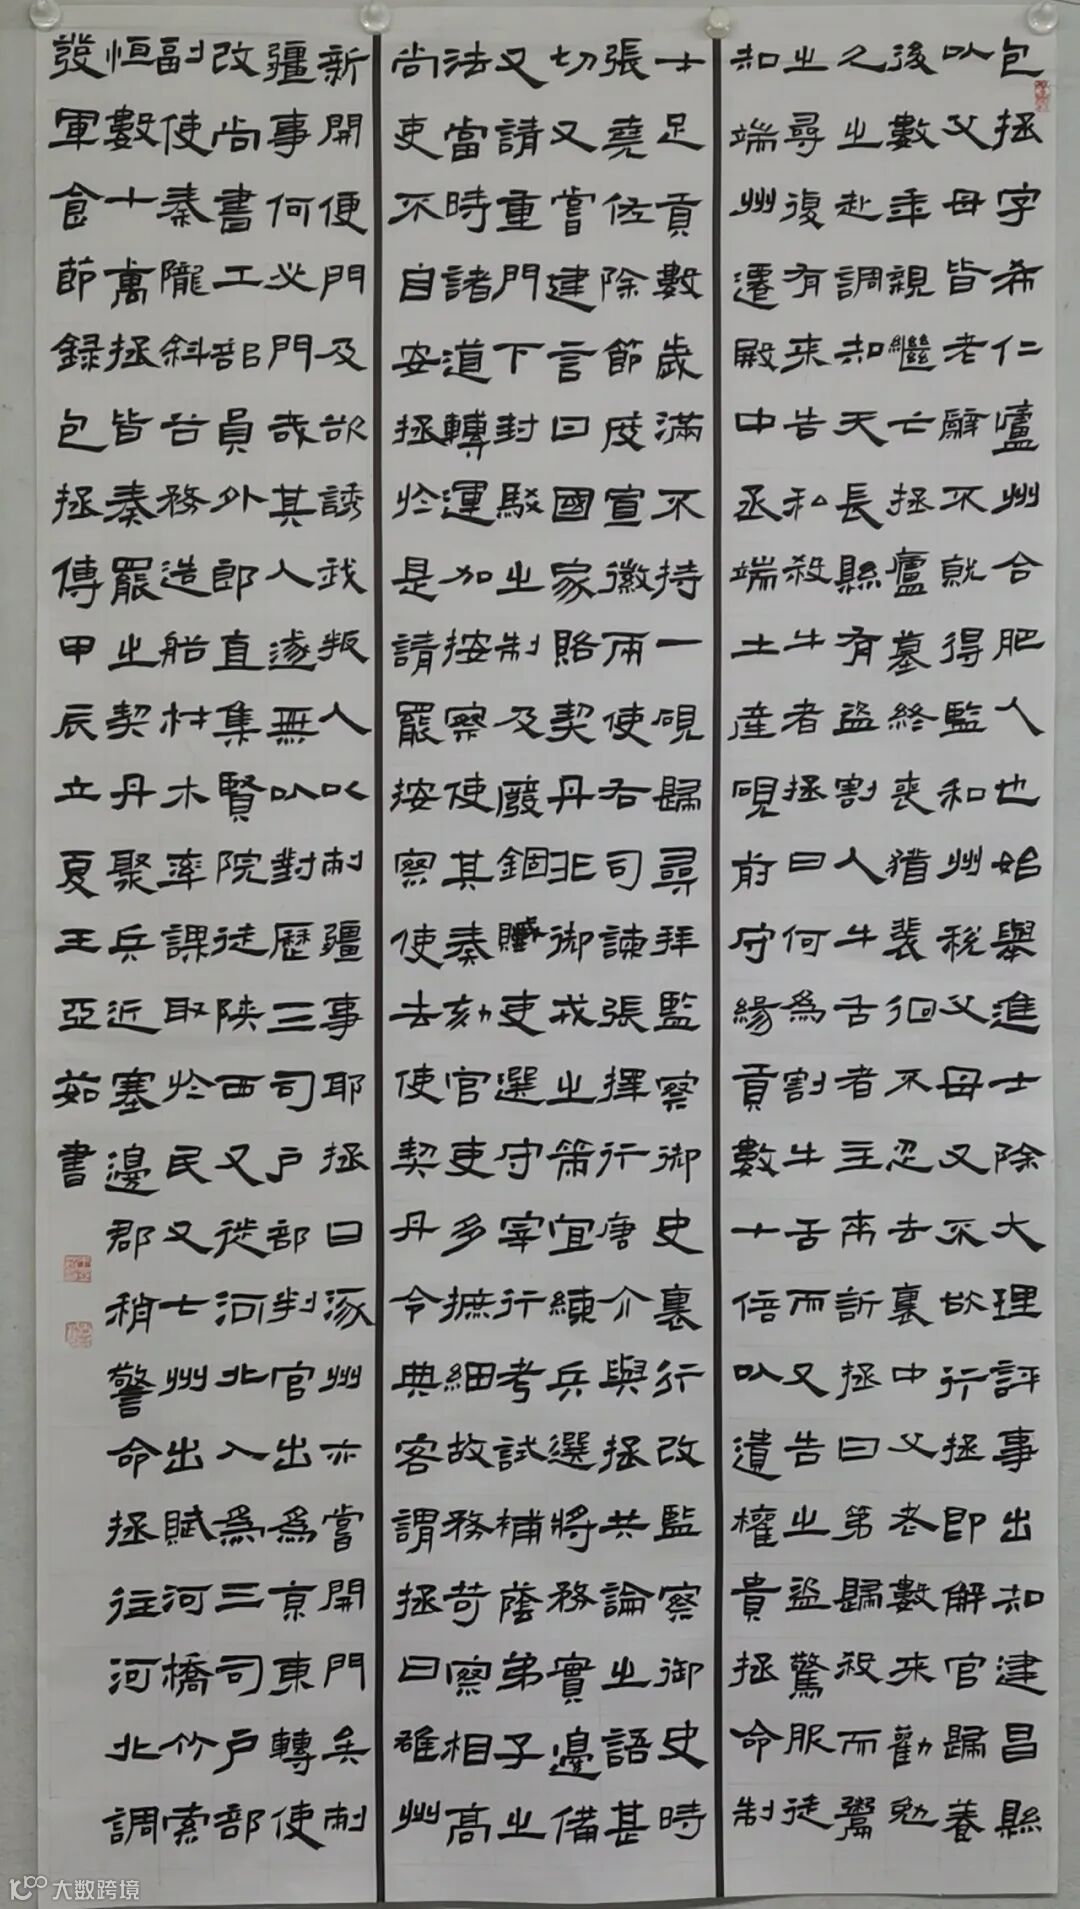 包拯字希仁廬州合肥人也始舉進士除大理評事出知建昌縣
以父母皆老辭不就得監和州稅父母又不欲行拯即解官歸養
後數年親繼亡拯廬墓終喪猶裴徊不忍去裏中父老數來勸勉
久之赴調知天長縣有盜割人牛舌者主來訴拯曰第歸殺而鬻
之尋復有來告私殺牛者拯曰何為割牛舌而又告之盜驚服徒
知端州遷殿中丞端土產硯前守緣貢數十倍以遺權貴拯命制
士足貢數歲滿不持一硯歸尋拜監察御史裏行改監察御史時
張堯佐除節度宣徽兩使右司諫張擇行唐介與拯共論之語甚
切又嘗建言曰國家賂契丹非御戎之策宜練兵選將務實邊備
又請重門下封駁之制及廢錮贓吏選守宰行考試補蔭弟子之
法當時諸道轉運加按察使其奏劾官吏多摭細故務苛察相高
尚吏不自安拯於是請罷按察使去使契丹令典客謂拯曰雄州
新開便門及欲誘我叛人以刺疆事耶拯曰涿州亦嘗開門矣刺
疆事何必門哉其人遂無以對歷三司戶部判官出為京東轉使
改尚書工部員外郎直集賢院徒陝西又徙河北入為三司戶部
副使秦隴斜谷務造船材木率課取於民又七州出賦河橋竹索
恒數十萬拯皆奏罷之契丹聚兵近塞邊郡稍警命拯往河北調
發軍食節錄包拯傳甲辰立夏王亞茹書
大数跨境